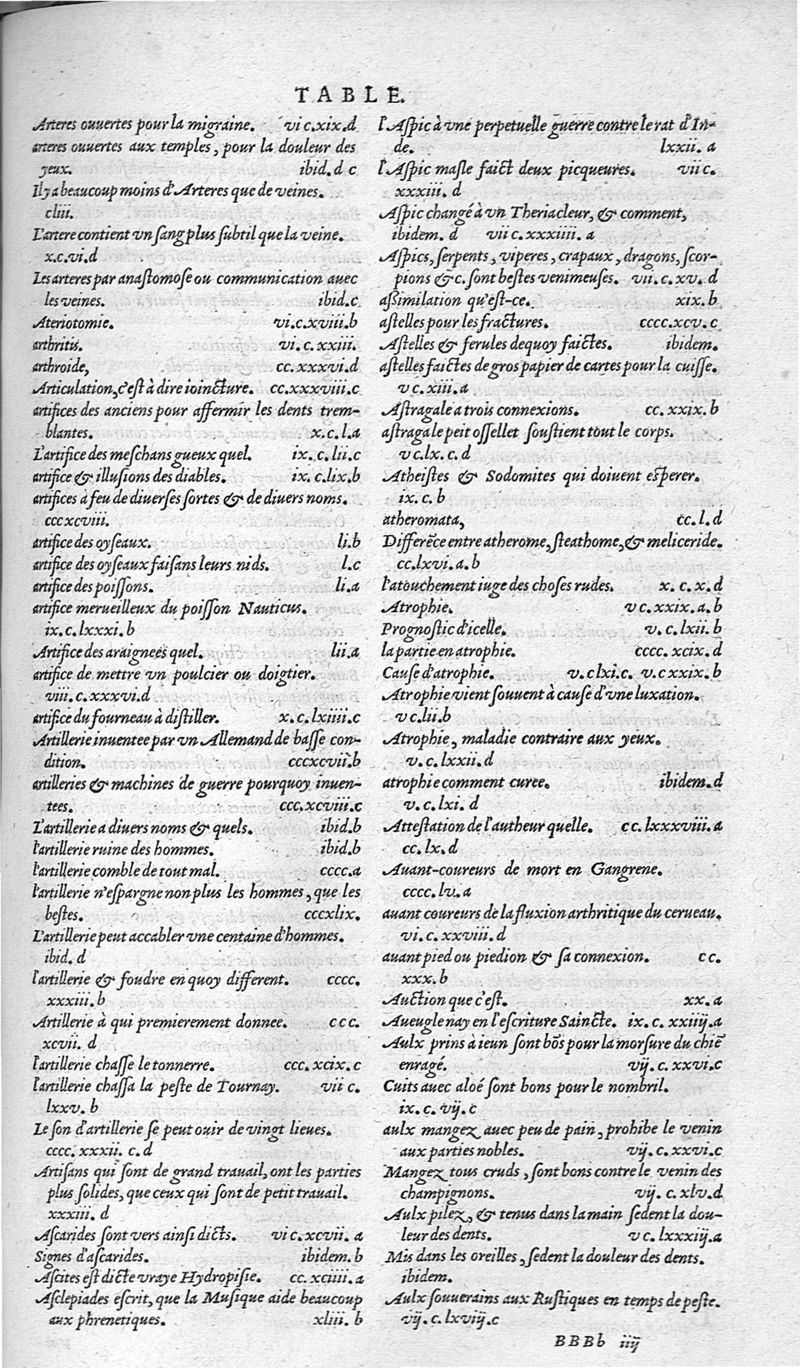 TABLE.
Arteres ouuertes pour la migraine. vi c.xix.d
arteres ouuertes aux temples, pour la douleur des
yeux. ibid. d c
Il y a beaucoup moins d'Arteres que de veines.
cliii.
L'artere contient vn sang plus subtil que la veine.
x.c.vi.d
Les arteres par anastomose ou communication auec
les veines. ibid.c
Ateriotomie. vi.c.xviii.b
arthritis. vi.c.xxiii.
arthroide, cc.xxxvi.d
Articulation, c'est à dire ioincture. cc.xxxviii.c
artifices des anciens pour affermir les dents trem-
blantes. x.c.l.a
L'artifice des meschans gueux quel. ix.c.lii.c
artifice & illusions des diables. ix.c.lix.b
artifices à feu de diuerses sortes & de diuers noms.
cccxcviii.
artifice des oyseaux. li.b
artifice des oyseaux faisans leurs nids. l.c
artifice des poissons. li.a
artifice merueilleux du poisson Nauticus.
ix.c.lxxxi.b
Artifice des araignees quel. lii.a
artifice de mettre vn poulcier ou doigtier.
viii.c.xxxvi.d
artifice du fourneau à distiller. x.c.lxiiii.c
Artillerie inuentee par vn Allemand de basse con-
dition. cccxcvii.b
artilleries & machines de guerre pourquoy inuen-
tees. ccc.xcviii.c
L'artillerie a diuers noms & quels. ibid.b
l'artillerie ruine des hommes. ibid.b
l'artillerie comble de tout mal. cccc.a
l'artillerie n'espargne non plus les hommes, que les
bestes. cccxlix.
L'artillerie peut accabler vne centaine d'hommes.
ibid. d
l'artillerie & foudre en quoy different. cccc.
xxxiii.b
Artillerie à qui premierement donnee. ccc.
xcvii. d
l'artillerie chasse le tonnerre. ccc.xcix.c
l'artillerie chassa la peste de Tournay. vii c.
lxxv. b
Le son d'artillerie se peut ouir de vingt lieues.
cccc. xxxii. c.d
Artisans qui sont de grand trauail, ont les parties
plus solides, que ceux qui sont de petit trauail.
xxxiii. d
Ascarides sont vers ainsi dicts. vi c.xcvii. a
Signes d'ascarides. ibidem.b
Ascites est dicte vraye Hydropisie. cc.xciiii.a
Asclepiades escrit, que la Musique aide beaucoup
aux phrenetiques. xliii. b
l'Aspic à vne perpetuelle guerre contre le rat d'In-
de. lxxii. a
l'Aspic masle faict deux picqueures. vii c.
xxxiii. d
Aspic changé à vn Theriacleur, & comment,
ibidem. d vii c.xxxiiii.a
Aspics, serpents, viperes, crapaux, dragons, scor-
pions & c. sont bestes venimeuses. vii.c.xv.d
assimilation qu'est-ce. xix.b
astelles pour les fractures. cccc.xcv.c
Astelles & ferules dequoy faictes. ibidem.
astelles faictes de gros papier de cartes pour la cuisse.
v c.xiii.a
Astragale a trois connexions. cc.xxix.b
astragale peit ossellet soustient tout le corps.
v c.lx.c.d
Atheistes & Sodomites qui doiuent esperer.
ix.c.b
atheromata, cc.l.d
Differẽce entre atherome, steathome, & meliceride.
cc.lxvi.a.b
l'atouchement iuge des choses rudes. x.c.x.d
Atrophie. v c.xxix.a.b
Prognostic d'icelle. v.c.lxii.b
la partie en atrophie. cccc.xcix.d
Cause d'atrophie. v.c.lxi.c. v.c.xxix.b
Atrophie vient souuent à cause d'vne luxation.
v c.lii.b
Atrophie, maladie contraire aux yeux.
v.c.lxxii.d
atrophie comment curee. ibidem.d
v.c.lxi.d
Attestation de l'autheur quelle. cc.lxxxviii.a
cc.lx.d
Auant-coureurs de mort en Gangrene.
cccc.lv.a
auant coureurs de la fluxion arthritique du cerueau.
vi.c.xxviii.d
auant pied ou piedion & sa connexion. cc.
xxx.b
Auction que c'est. xx.a
Aueugle nay en l'escriture Saincte. ix.c.xxiij.a
Aulx prins à ieun sont bõs pour la morsure du chiẽ
enragé. vij.c.xxvi.c
Cuits auec aloé sont bons pour le nombril.
ix.c.vij.c
aulx mangez auec peu de pain, prohibe le venin
aux parties nobles. vij.c.xxvi.c
Mangez tous cruds, sont bons contre le venin des
champignons. vij.c.xlv.d
Aulx pilez, & tenus dans la main sedent la dou-
leur des dents. v c.lxxxij.a
Mis dans les oreilles, sedent la douleur des dents.
ibidem.
Aulx souuerains aux Rustiques en temps de peste.
vij.c.lxviij.c
BBBb iiij